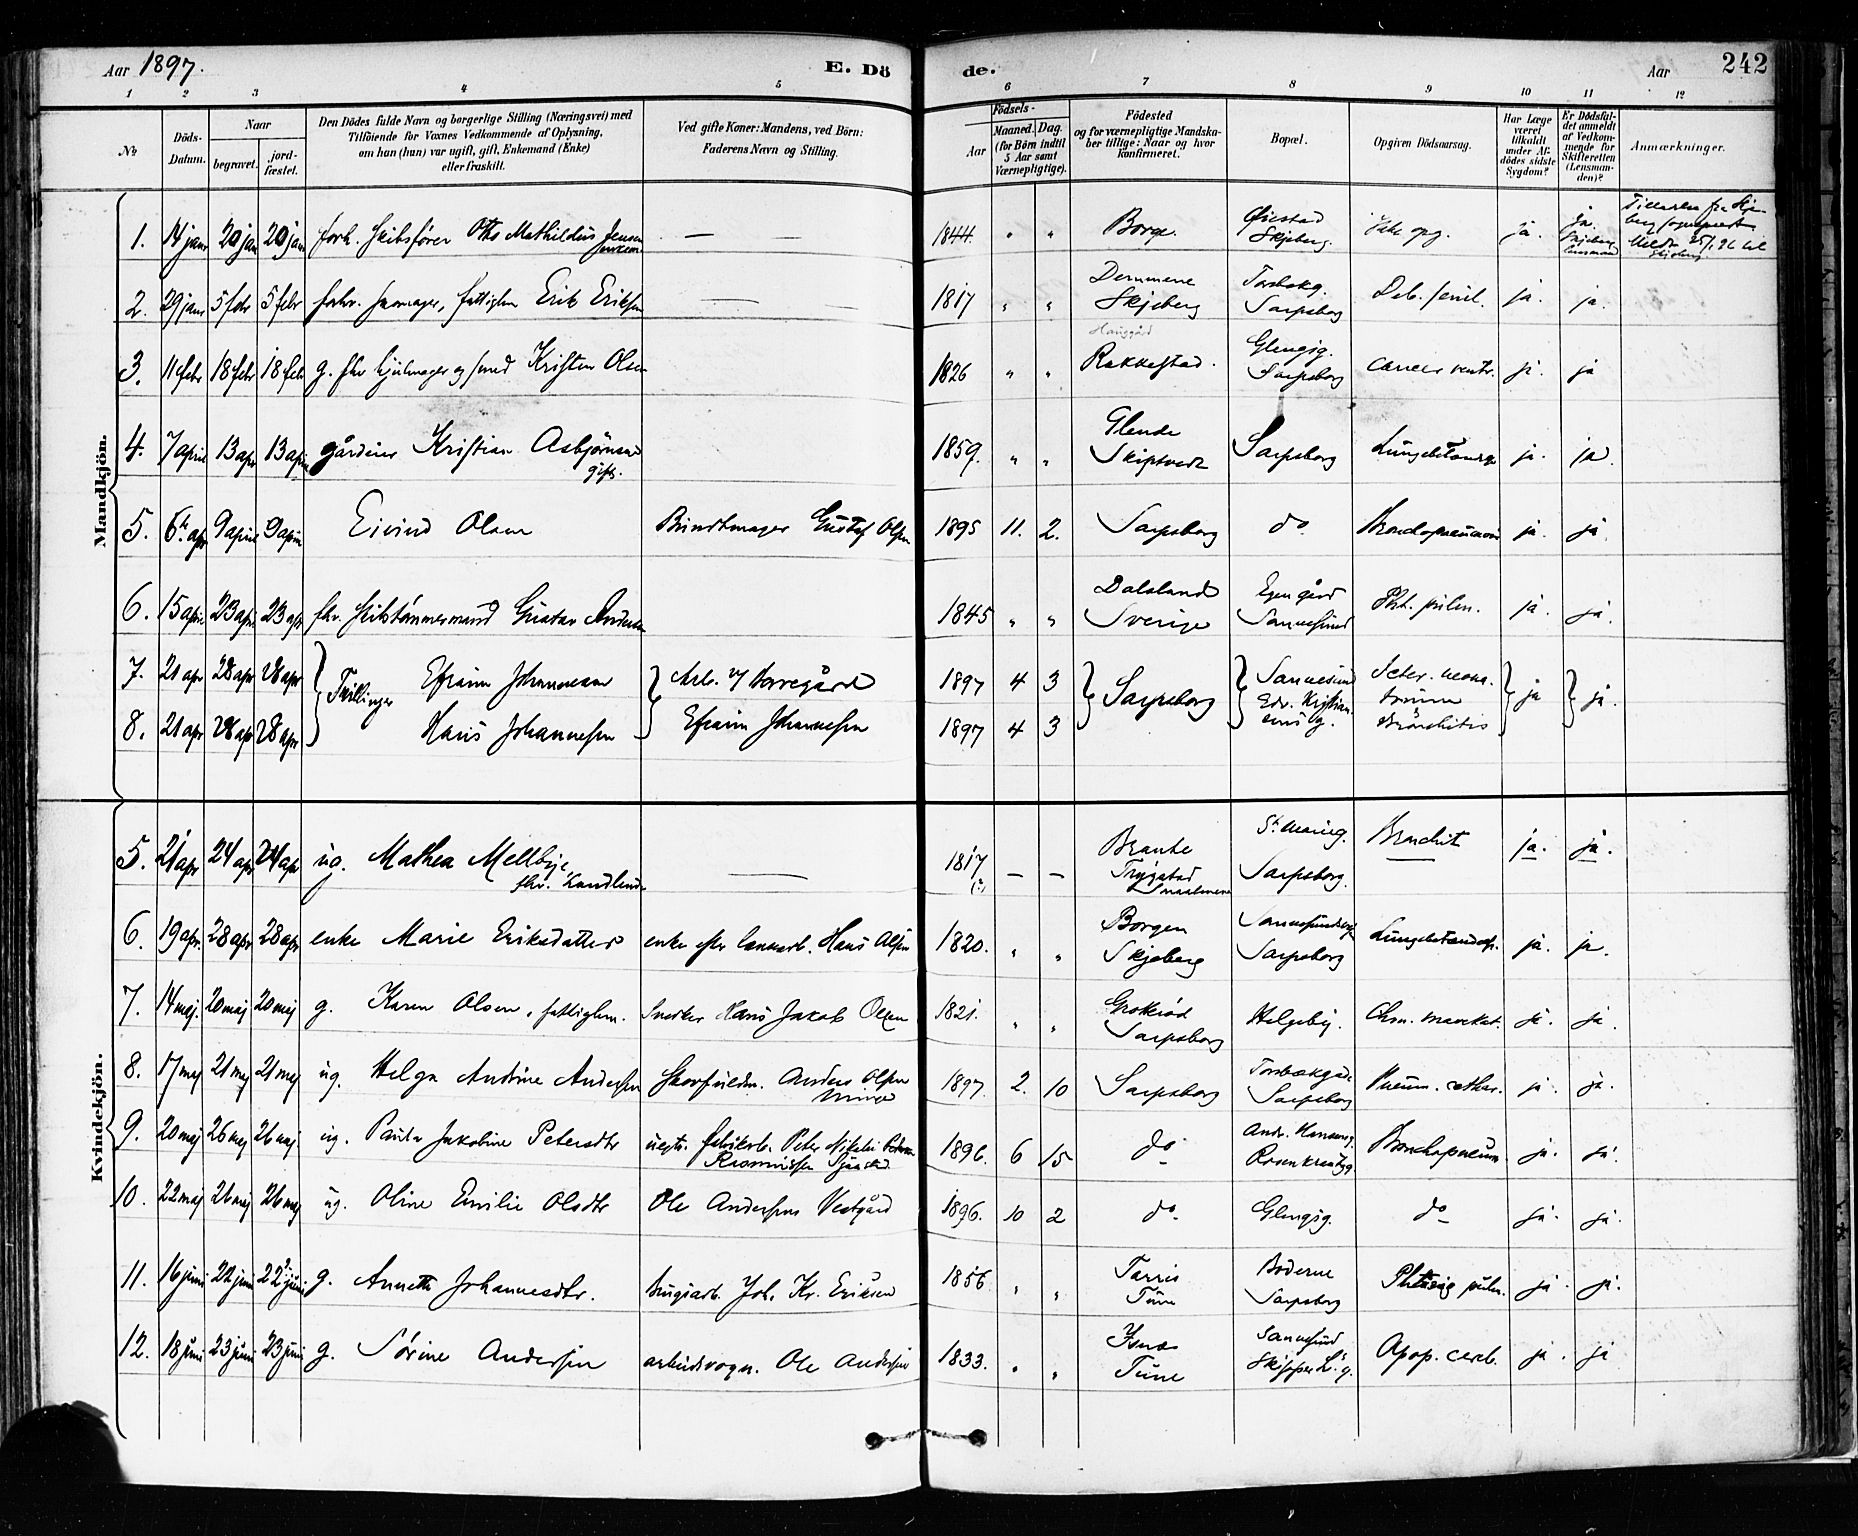 Aar 1897.
E. Dö
de.
Aar 242
1 2 3 4 5 6 7 8 9 10 11 12
№
Döds-Datum.
Naar
begravet.
jord-fæstet.
Den Dödes fulde Navn og borgerlige Stilling (Næringsvei) med
Tilföiende for Voxnes Vedkommende af Oplysning,
om han (hun) var ugift, gift, Enkemand (Enke)
eller fraskilt.
Ved gifte Koner: Mandens, ved Börn:
Faderens Navn og Stilling.
Födsels-
Aar
Maaned.
Dag.
(for Börn indtil
5 Aar samt
Værnepligtige).
Födested
og for værnepligtige Mandska-
ber tillige: Naar og hvor
konfirmeret.
Bopæl.
Opgiven Dödsaarsag.
Har Læge
været
tilkaldt
under Af-
dödes sidste
Sygdom?
Er Dödsfal-
det anmeldt
af Vedkom-
mende for
Skifteretten
(Lensman-
den)?
Anmærkninger.
Mandkjön.
1. 14 janr 20 jan 20 jan forh. skibsfører Otto Mathildus Jensen — — 1844. " " Borge. Skjeberg. ja. ja. Skjeberg lensmand
2. 29 janr 5 febr 5 febr forhv. skomager, fattiglem Erik Eriksen — 1817 " " Skjeberg Torsbekg. Sarpsborg Deb. senil. ja. ja.
3. 11 febr 18 febr 18 feb g. fhv hjulmager og smed Kristen Olsen 1826 " " Rakkestad. Glengsg. Sarpsborg cancer ventr. ja. ja
4. 7 april 13 apr 13 april gårdeier Kristian Asbjørnsen gift. 1859. " " Glende Skiptvedt Sarpsborg Lungebetændelse ja. ja.
5. 6te apr 9 april 9 april Eivind Olsen Bundtmager Gustaf Olsen 1895 11. 2. Sarpsborg do Bronchopneumoni ja. ja.
6. 15 april 23 apr. 23 apr fhv. skibstömmermand Gustav Andersen 1845 " " Dalsland Sverige Egen gård Sannesund Pht. pulm. ja. ja.
7. 21 apr 28 apr 28 apr Tvillinger Efraim Johannesen Arb. v/ Borregård 1897 4 3 Sarpsborg Sannesund Icter. neona- ja ja.
8. 21 apr 28 apr 28 apr Hans Johannesen Efraim Johannesen 1897 4 3 Edv. Kristian- sens g. torum & Bronchitis
Kvindekjön.
5. 21 apr 24 apr 24 apr ug. Mathea Mellbye, — 1817 (?) — — Trygstad Smaalenene St. Marieg. Sarpsborg. Bronchit ja. ja.
6. 19 apr. 28 apr 28 apr enke Marie Eriksdatter enke efter Hans Olsen 1820. " " Borgen Skjeberg Sannesundsvgn Sarpsborg Lungebetændelse. ja. ja.
7. 14 maj. 20 maj 20 maj g. Karen Olsen, fattiglem. Snedker Hans Jakob Olsen 1821. " " Grotterød Sarpsborg Helgeby. ja. ja.
8. 17 maj 21 maj 21 maj ug. Helga Andrine Andersen Anders Olsen 1897. 2. 10 Sarpsborg Torsbækgade Sarpsborg Pneum. cathar. ja. ja.
9. 20 maj 26 maj 26 maj. ug. Paula Jakobine Petersdtr fabrikarb. Peter Nikolai Rasmussen 1896. 6 15 do Andr. Hansens g. Rosenkrantzg. Bronchopneum. ja. ja.
10. 22 maj 26 maj 26 maj ug. Oline Emilie Olsdtr Ole Andersen Vestgård 1896. 10 2 do. Glengsg. do ja. ja.
11. 16 juni 22 juni 22 juni g. Annette Johannesdtr. brugsarb. Joh. Kr. Eriksen 1856. " " Tune Boderne Sarpsborg Phthisis pulm. ja. ja.
12. 18 juni 23 juni 23 juni g. Sørine Andersen arbeidsvogn. Ole Andersen 1833. " " Tune Sannesund Apop. cereb. ja. ja